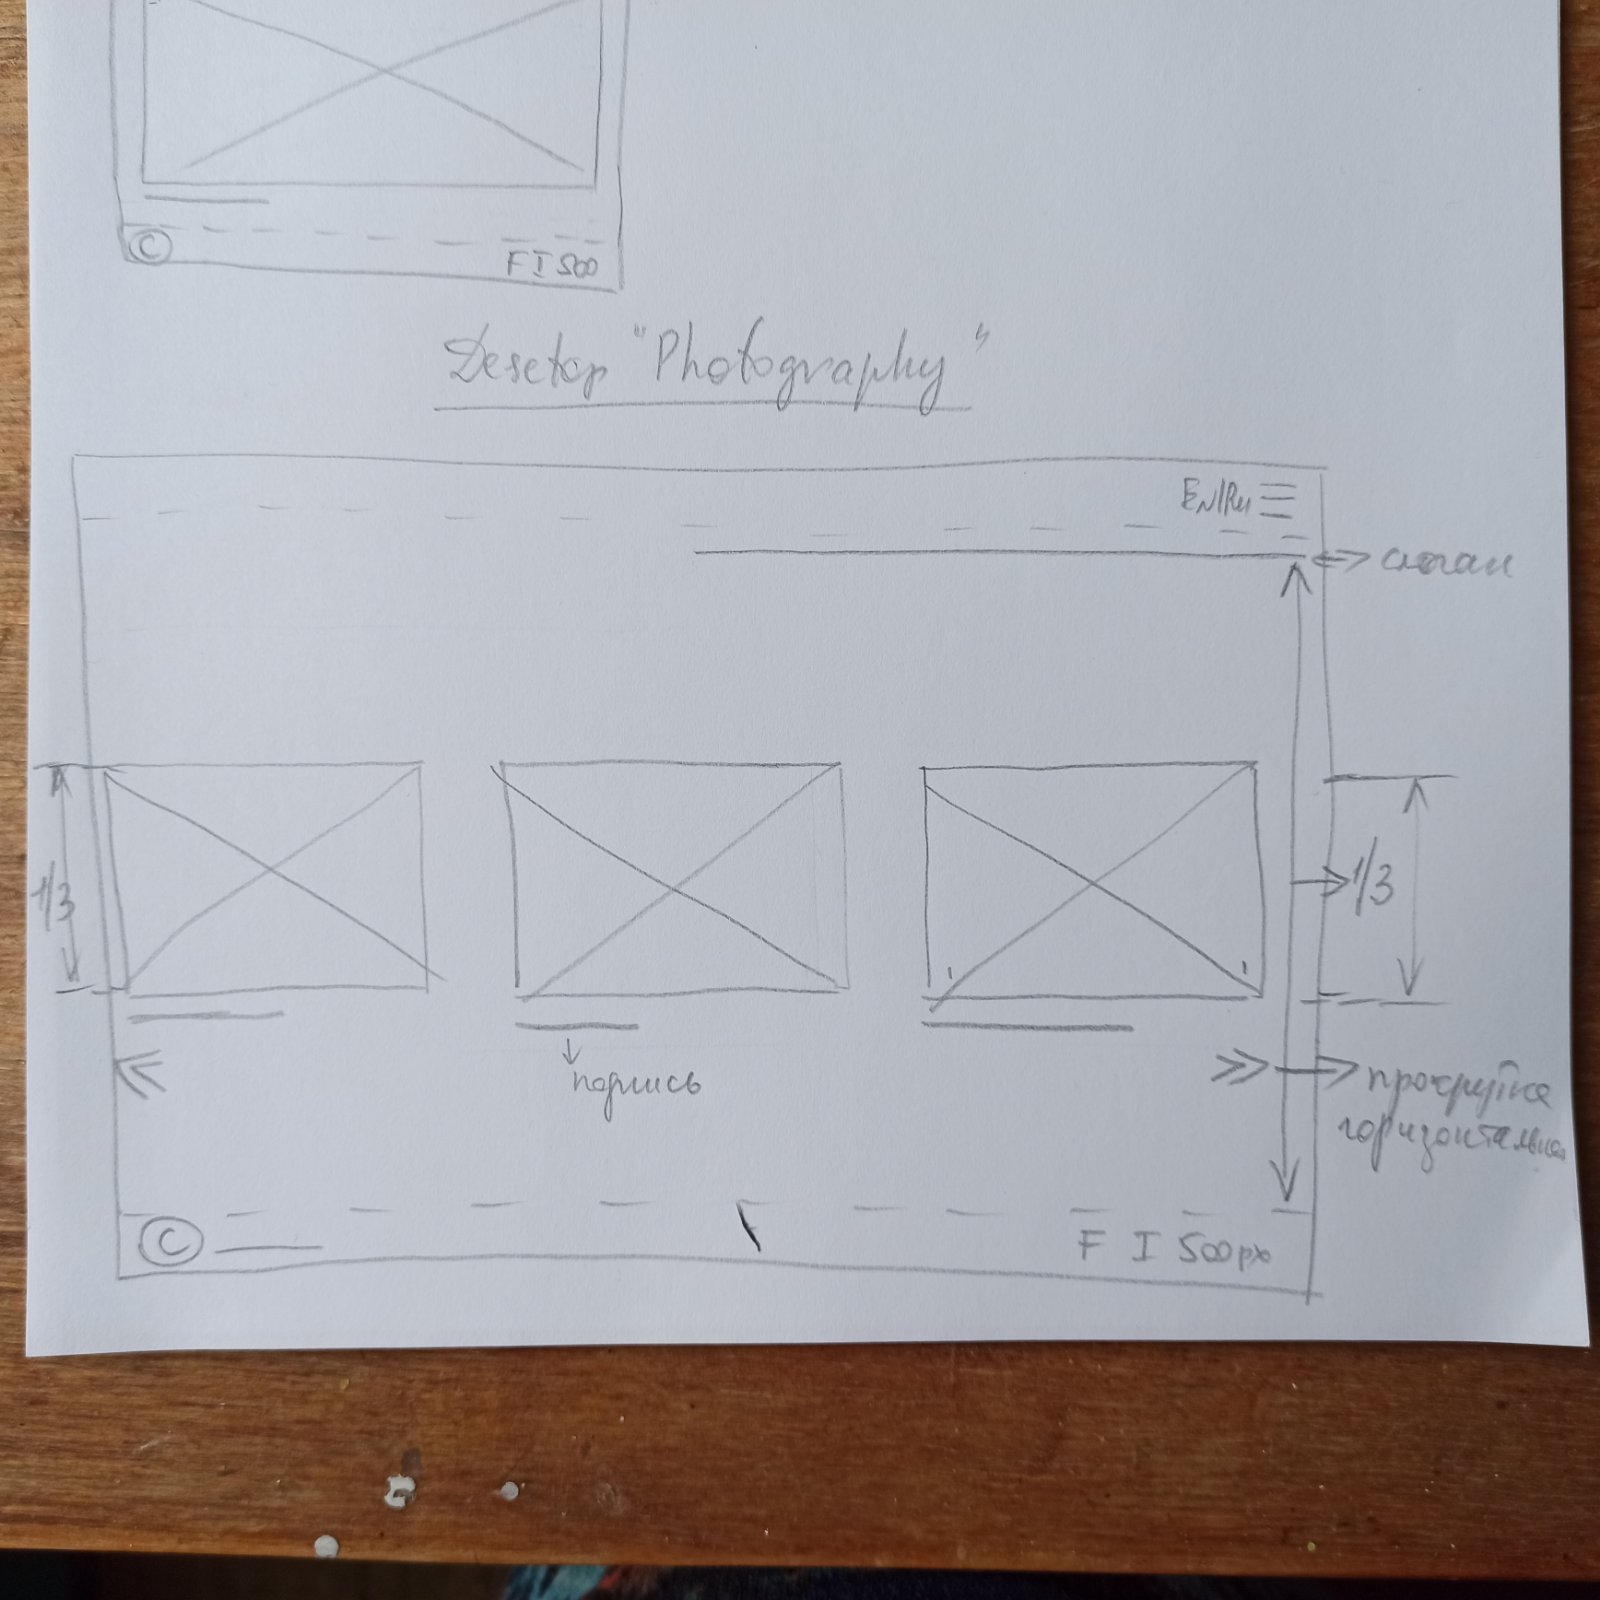 ©
F I 500
Desctop "Photography"
En/Ru
слоган
1/3
1/3
подпись
прокрутка
горизонтальная
©
F I 500px